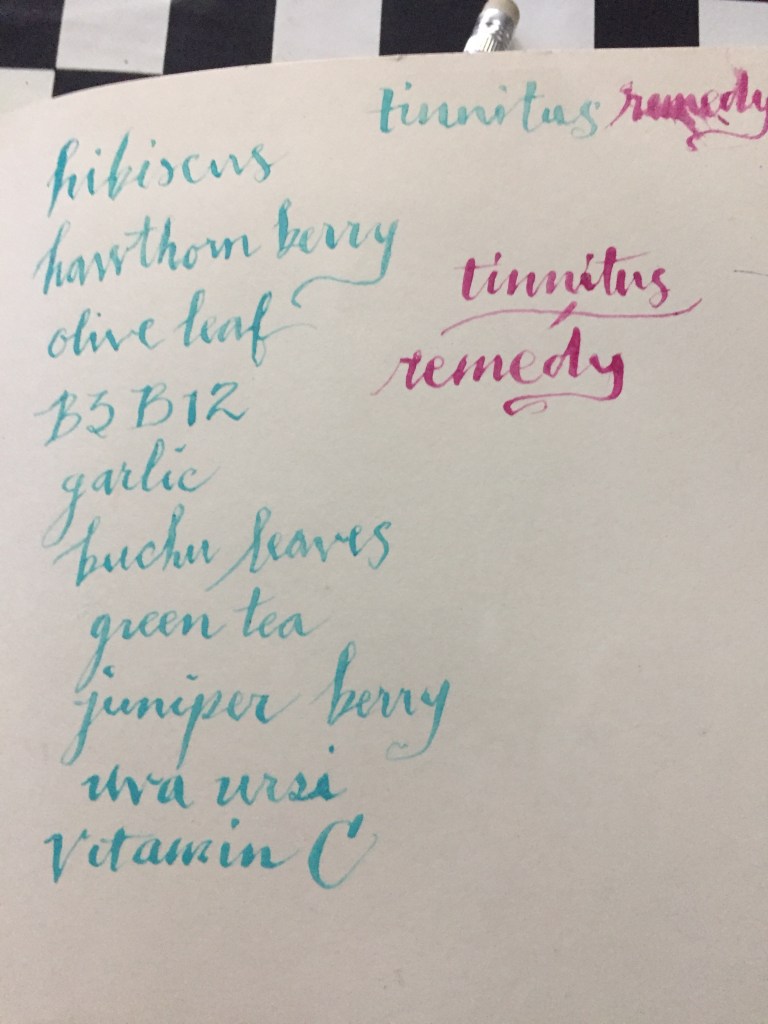 tinnitus remedy
hibiscus
hawthorn berry
olive leaf
B3 B12
garlic
buchu leaves
green tea
juniper berry
uva ursi
Vitamin C
tinnitus
remedy